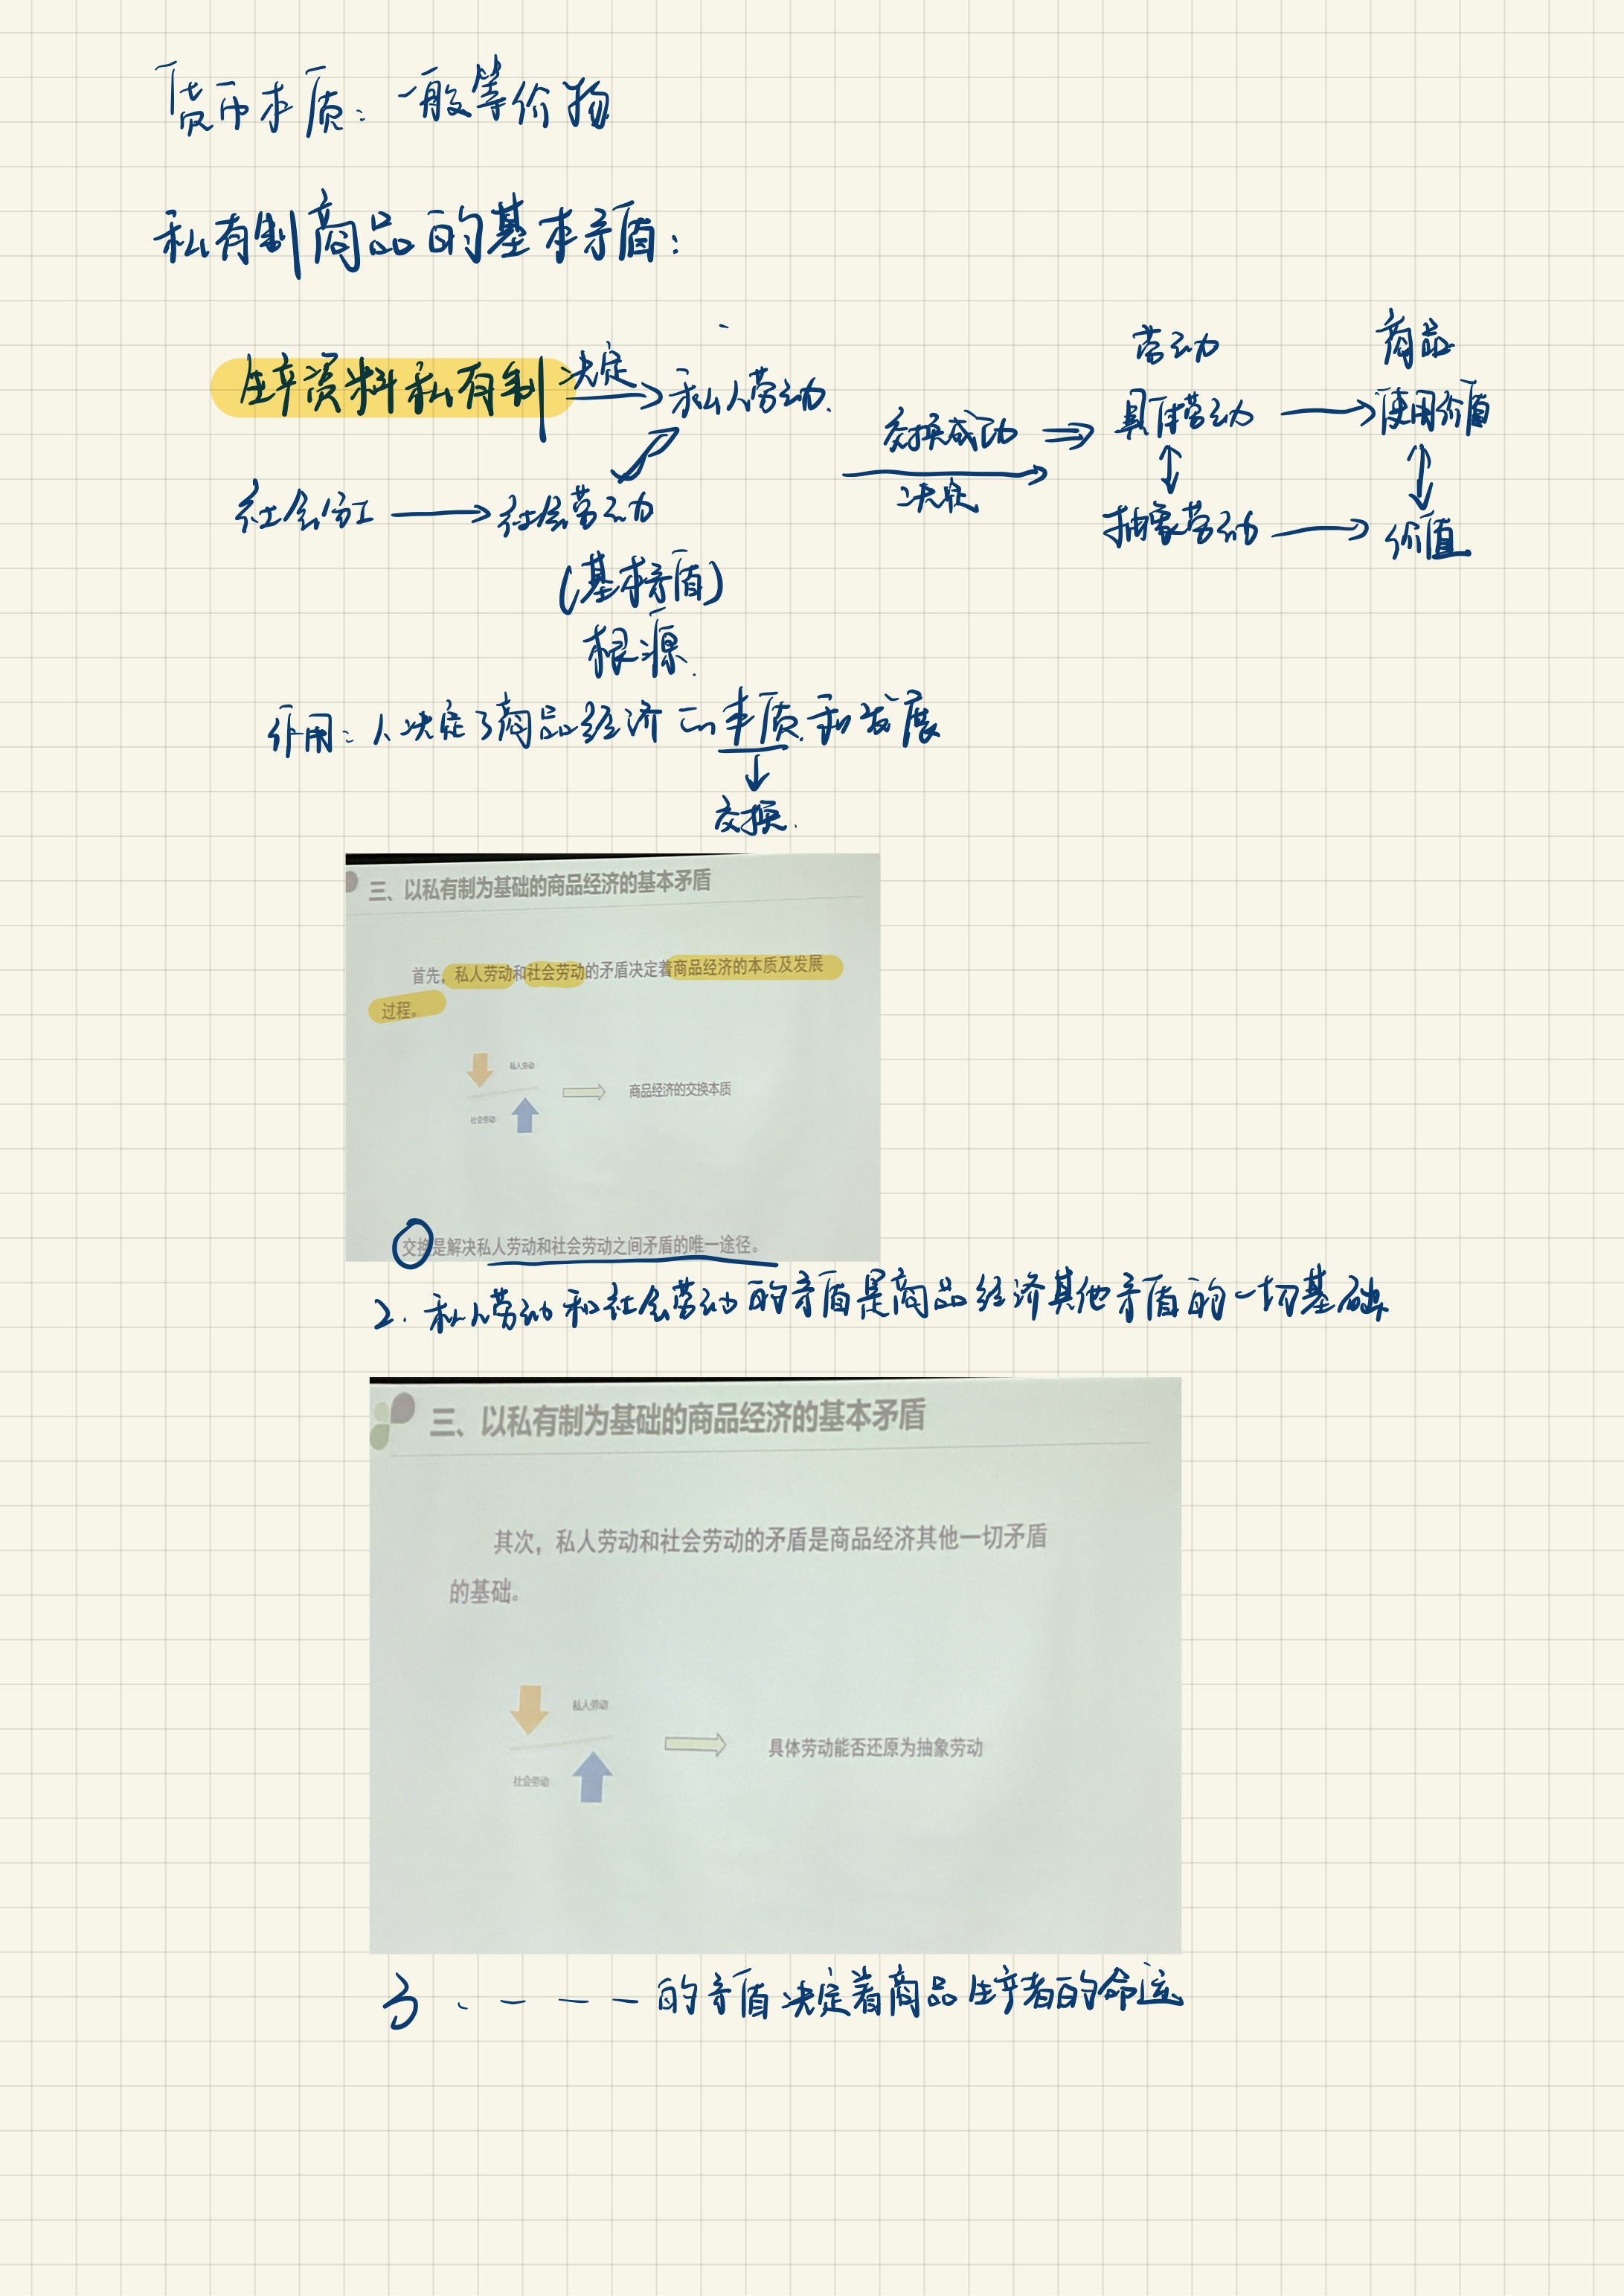 货币本质：一般等价物
私有制商品的基本矛盾：
劳动 商品
生产资料私有制 决定 私人劳动
交换成功 具体劳动 使用价值
社会分工 社会劳动 决定 抽象劳动 价值
(基本矛盾)
根源
作用：1、决定了商品经济的本质和发展
交换
三、以私有制为基础的商品经济的基本矛盾
首先，私人劳动和社会劳动的矛盾决定着商品经济的本质及发展
过程。
私人劳动
商品经济的交换本质
社会劳动
交换是解决私人劳动和社会劳动之间矛盾的唯一途径。
2. 私人劳动和社会劳动的矛盾是商品经济其他矛盾的一切基础
三、以私有制为基础的商品经济的基本矛盾
其次，私人劳动和社会劳动的矛盾是商品经济其他一切矛盾
的基础。
私人劳动
具体劳动能否还原为抽象劳动
社会劳动
3、- - - 的矛盾决定着商品生产者的命运